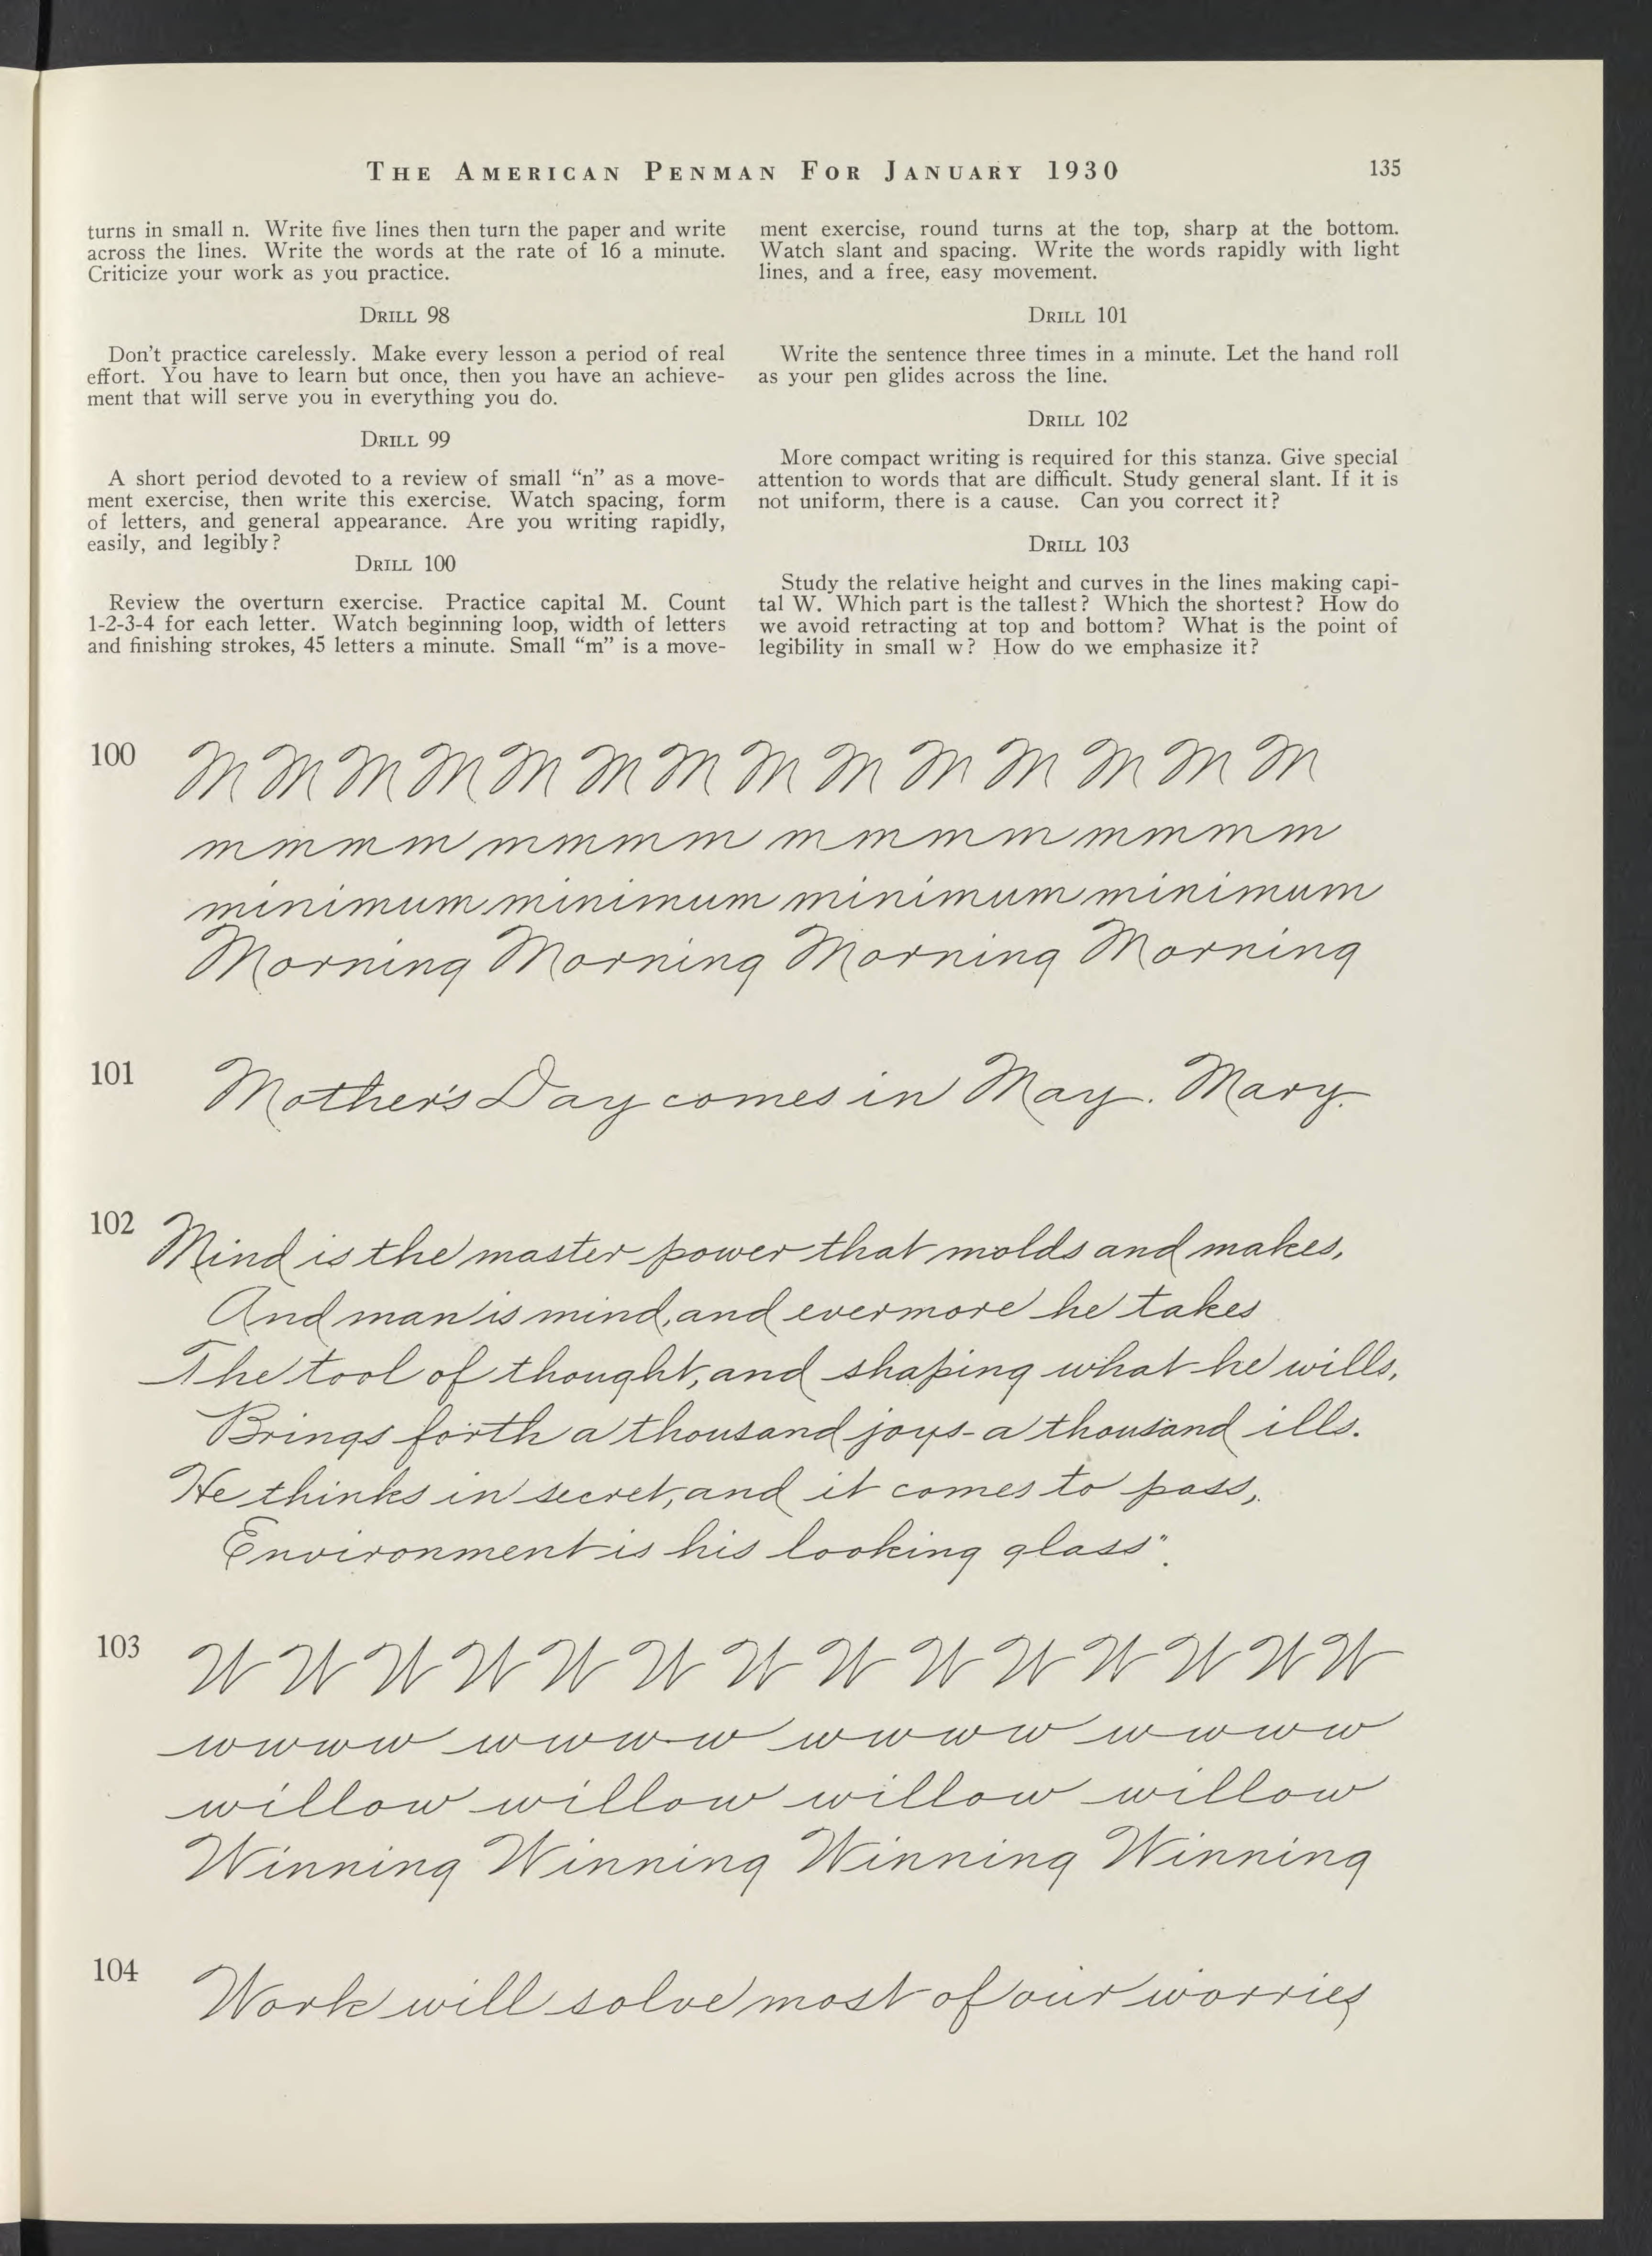 THE AMERICAN PENMAN FOR JANUARY 1930
135
turns in small n. Write five lines then turn the paper and write
across the lines. Write the words at the rate of 16 a minute.
Criticize your work as you practice.
DRILL 98
Don't practice carelessly. Make every lesson a period of real
effort. You have to learn but once, then you have an achieve-
ment that will serve you in everything you do.
DRILL 99
A short period devoted to a review of small “n” as a move-
ment exercise, then write this exercise. Watch spacing, form
of letters, and general appearance. Are you writing rapidly,
easily, and legibly?
DRILL 100
Review the overturn exercise. Practice capital M. Count
1-2-3-4 for each letter. Watch beginning loop, width of letters
and finishing strokes, 45 letters a minute. Small “m” is a move-
ment exercise, round turns at the top, sharp at the bottom.
Watch slant and spacing. Write the words rapidly with light
lines, and a free, easy movement.
DRILL 101
Write the sentence three times in a minute. Let the hand roll
as your pen glides across the line.
DRILL 102
More compact writing is required for this stanza. Give special
attention to words that are difficult. Study general slant. If it is
not uniform, there is a cause. Can you correct it?
DRILL 103
Study the relative height and curves in the lines making capi-
tal W. Which part is the tallest? Which the shortest? How do
we avoid retracting at top and bottom? What is the point of
legibility in small w? How do we emphasize it?
100 M M M M M M M M M M M M M M
m m m m m m m m m m m m m m m m m m
minimum minimum minimum minimum
Morning Morning Morning Morning
101 Mother's Day comes in May. Mary.
102 Mind is the master power that molds and makes,
And man is mind, and evermore he takes
The tool of thought, and shaping what he wills,
Brings forth a thousand joys - a thousand ills.
He thinks in secret, and it comes to pass,
Environment is his looking glass".
103 W W W W W W W W W W W W W W
w w w w w w w w w w w w w w w w
willow willow willow willow
Winning Winning Winning Winning
104 Work will solve most of our worries